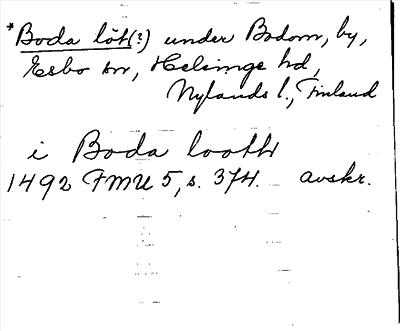 *Boda löt(?) under Bodom, by,
Esbo sn, Helsinge hd,
Nylands l., Finland
i Boda looth
1492 FMU 5, s. 374. avskr.